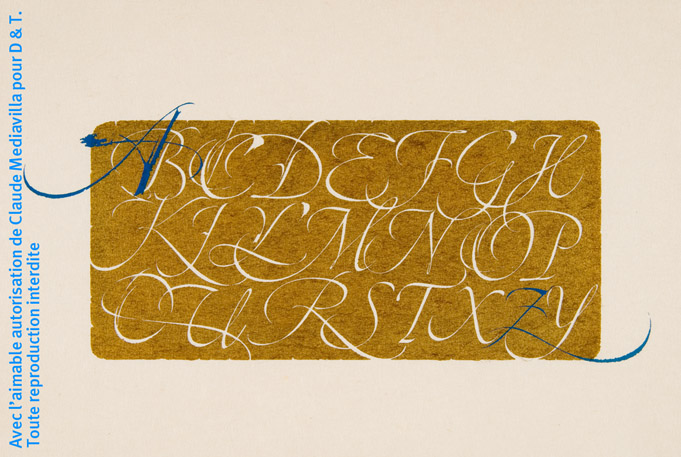 Avec l'aimable autorisation de Claude Mediavilla pour D & T.
Toute reproduction interdite
ABCDEFGH
KILMNOP
QURSTXZY